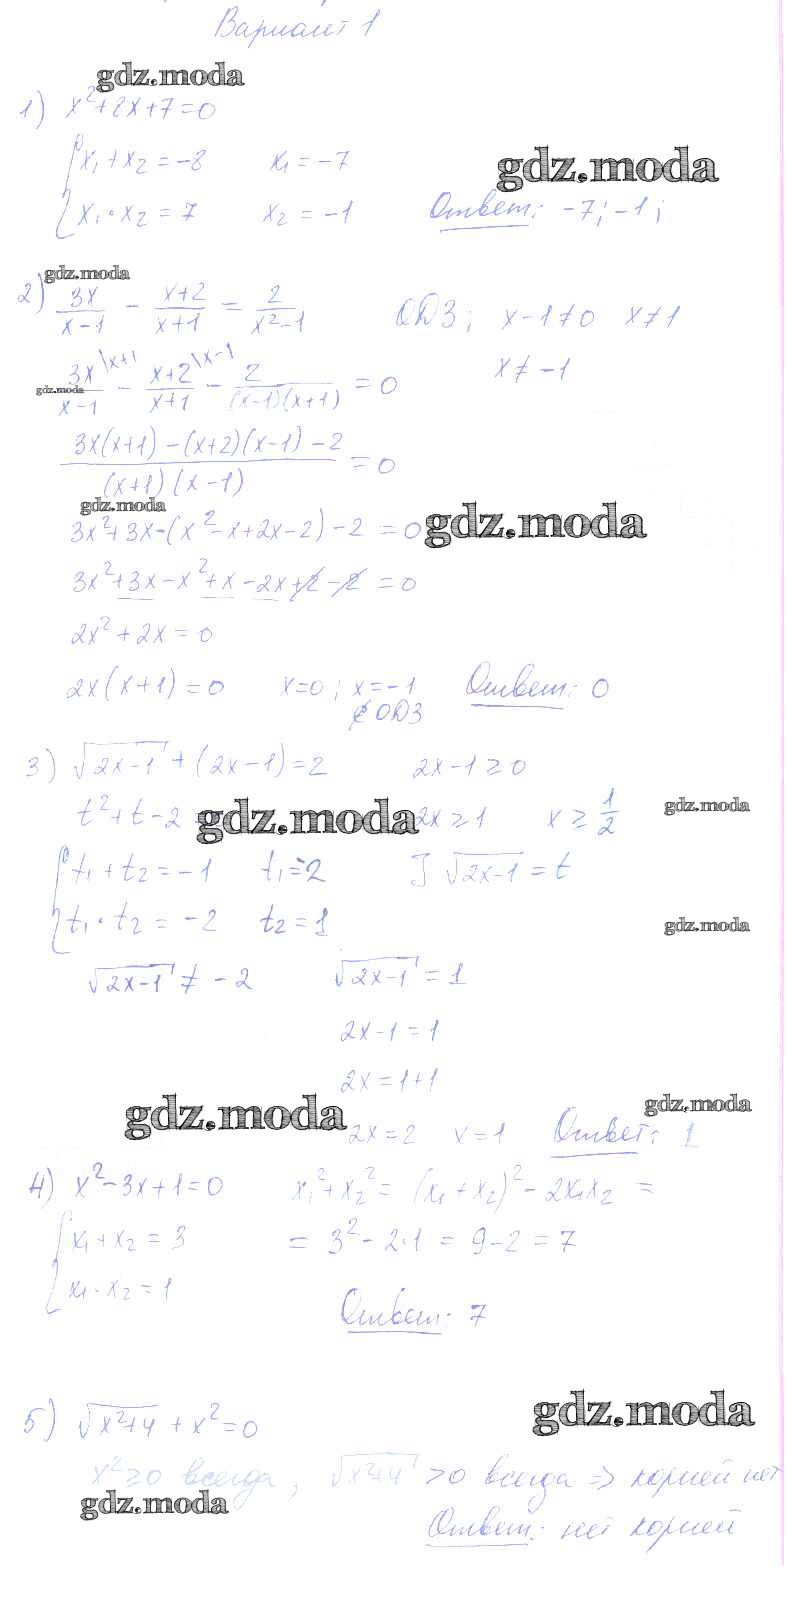 Вариант 1
gdz.moda
1) x²+8x+7=0
x₁+x₂=-8 x₁=-7
gdz.moda
x₁·x₂=7 x₂=-1 Ответ: -7; -1;
gdz.moda
2) 3x/(x-1) - (x+2)/(x+1) = 2/(x²-1) ОДЗ; x-1≠0 x≠1
x≠-1
3x\x+1/(x-1) - x+2\x-1/(x+1) - 2/((x-1)(x+1)) = 0
gdz.moda
(3x(x+1)-(x+2)(x-1)-2)/((x+1)(x-1)) = 0
gdz.moda
3x²+3x-(x²-x+2x-2)-2=0
gdz.moda
3x²+3x-x²+x-2x+2-2=0
2x²+2x=0
2x(x+1)=0 x=0; x=-1 Ответ: 0
∉ ОДЗ
3) √(2x-1)+(2x-1)=2 2x-1≥0
t²+t-2 gdz.moda 2x≥1 x≥1/2 gdz.moda
t₁+t₂=-1 t₁=-2 ] √(2x-1)=t
t₁·t₂=-2 t₂=1 gdz.moda
√(2x-1)≠-2 √(2x-1)=1
2x-1=1
2x=1+1
gdz.moda gdz.moda
2x=2 x=1 Ответ: 1
4) x²-3x+1=0 x₁²+x₂²=(x₁+x₂)²-2x₁x₂=
x₁+x₂=3 =3²-2·1=9-2=7
x₁·x₂=1
Ответ: 7
gdz.moda
5) √(x²+4)+x²=0
x²≥0 всегда, √(x²+4)>0 всегда ⇒ корней нет
gdz.moda
Ответ: нет корней